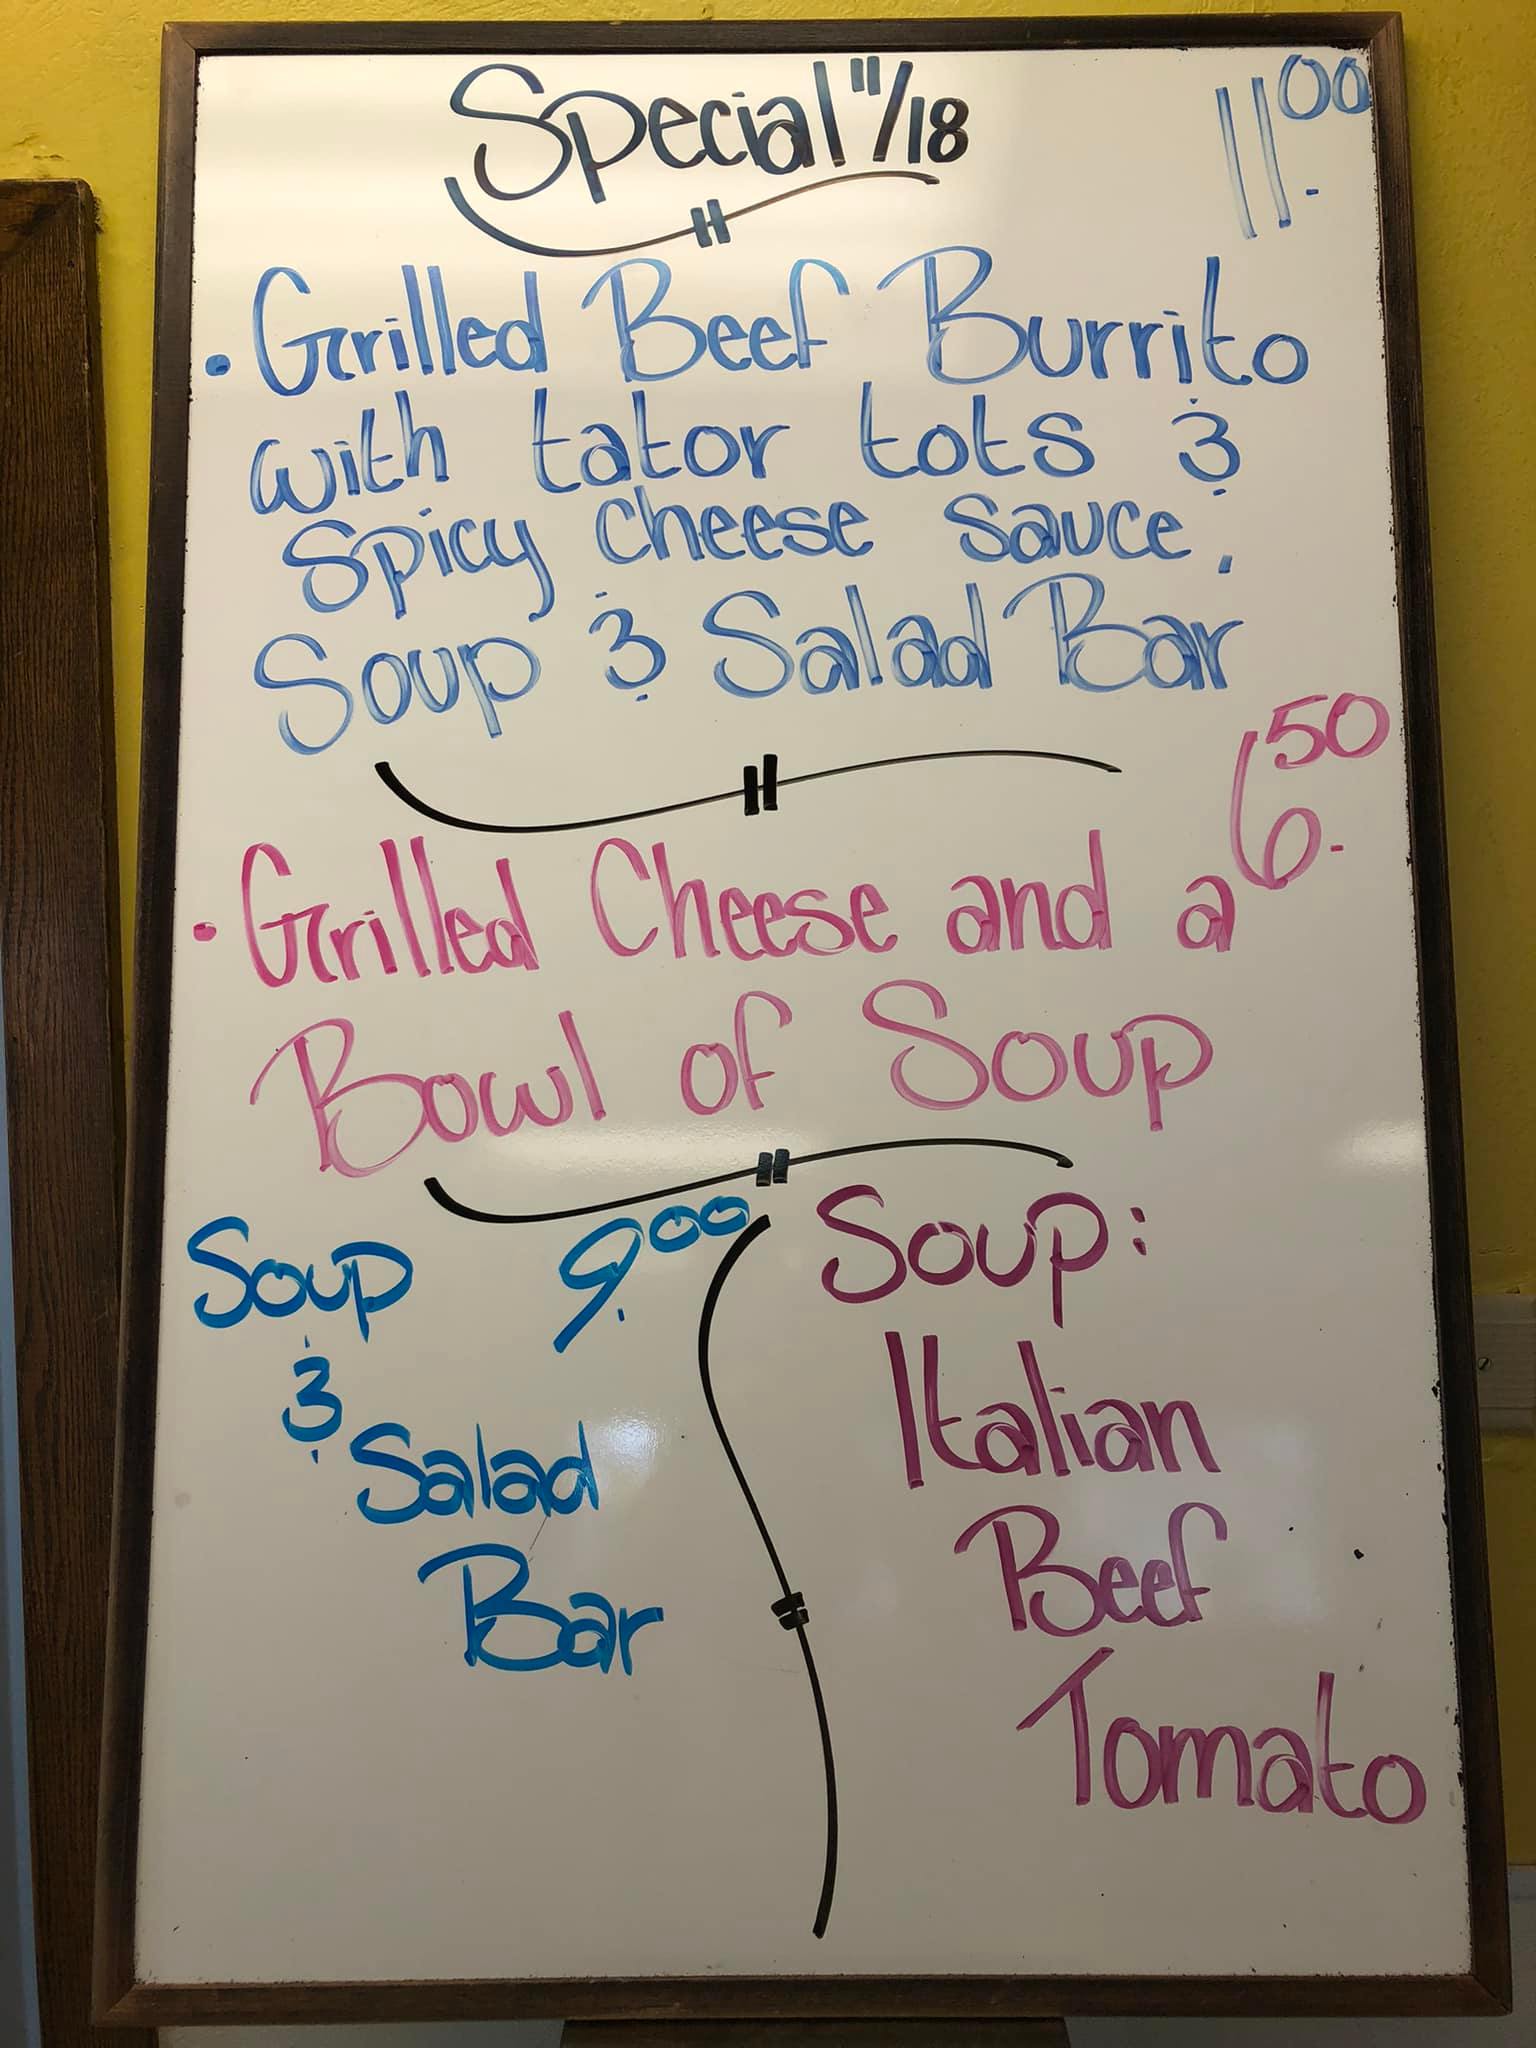 Special 11/18
11.00
• Grilled Beef Burrito
with tator tots &
Spicy cheese sauce.
Soup & Salad Bar
6.50
• Grilled Cheese and a
Bowl of Soup
Soup 9.00
&
Salad
Bar
Soup:
Italian
Beef
Tomato